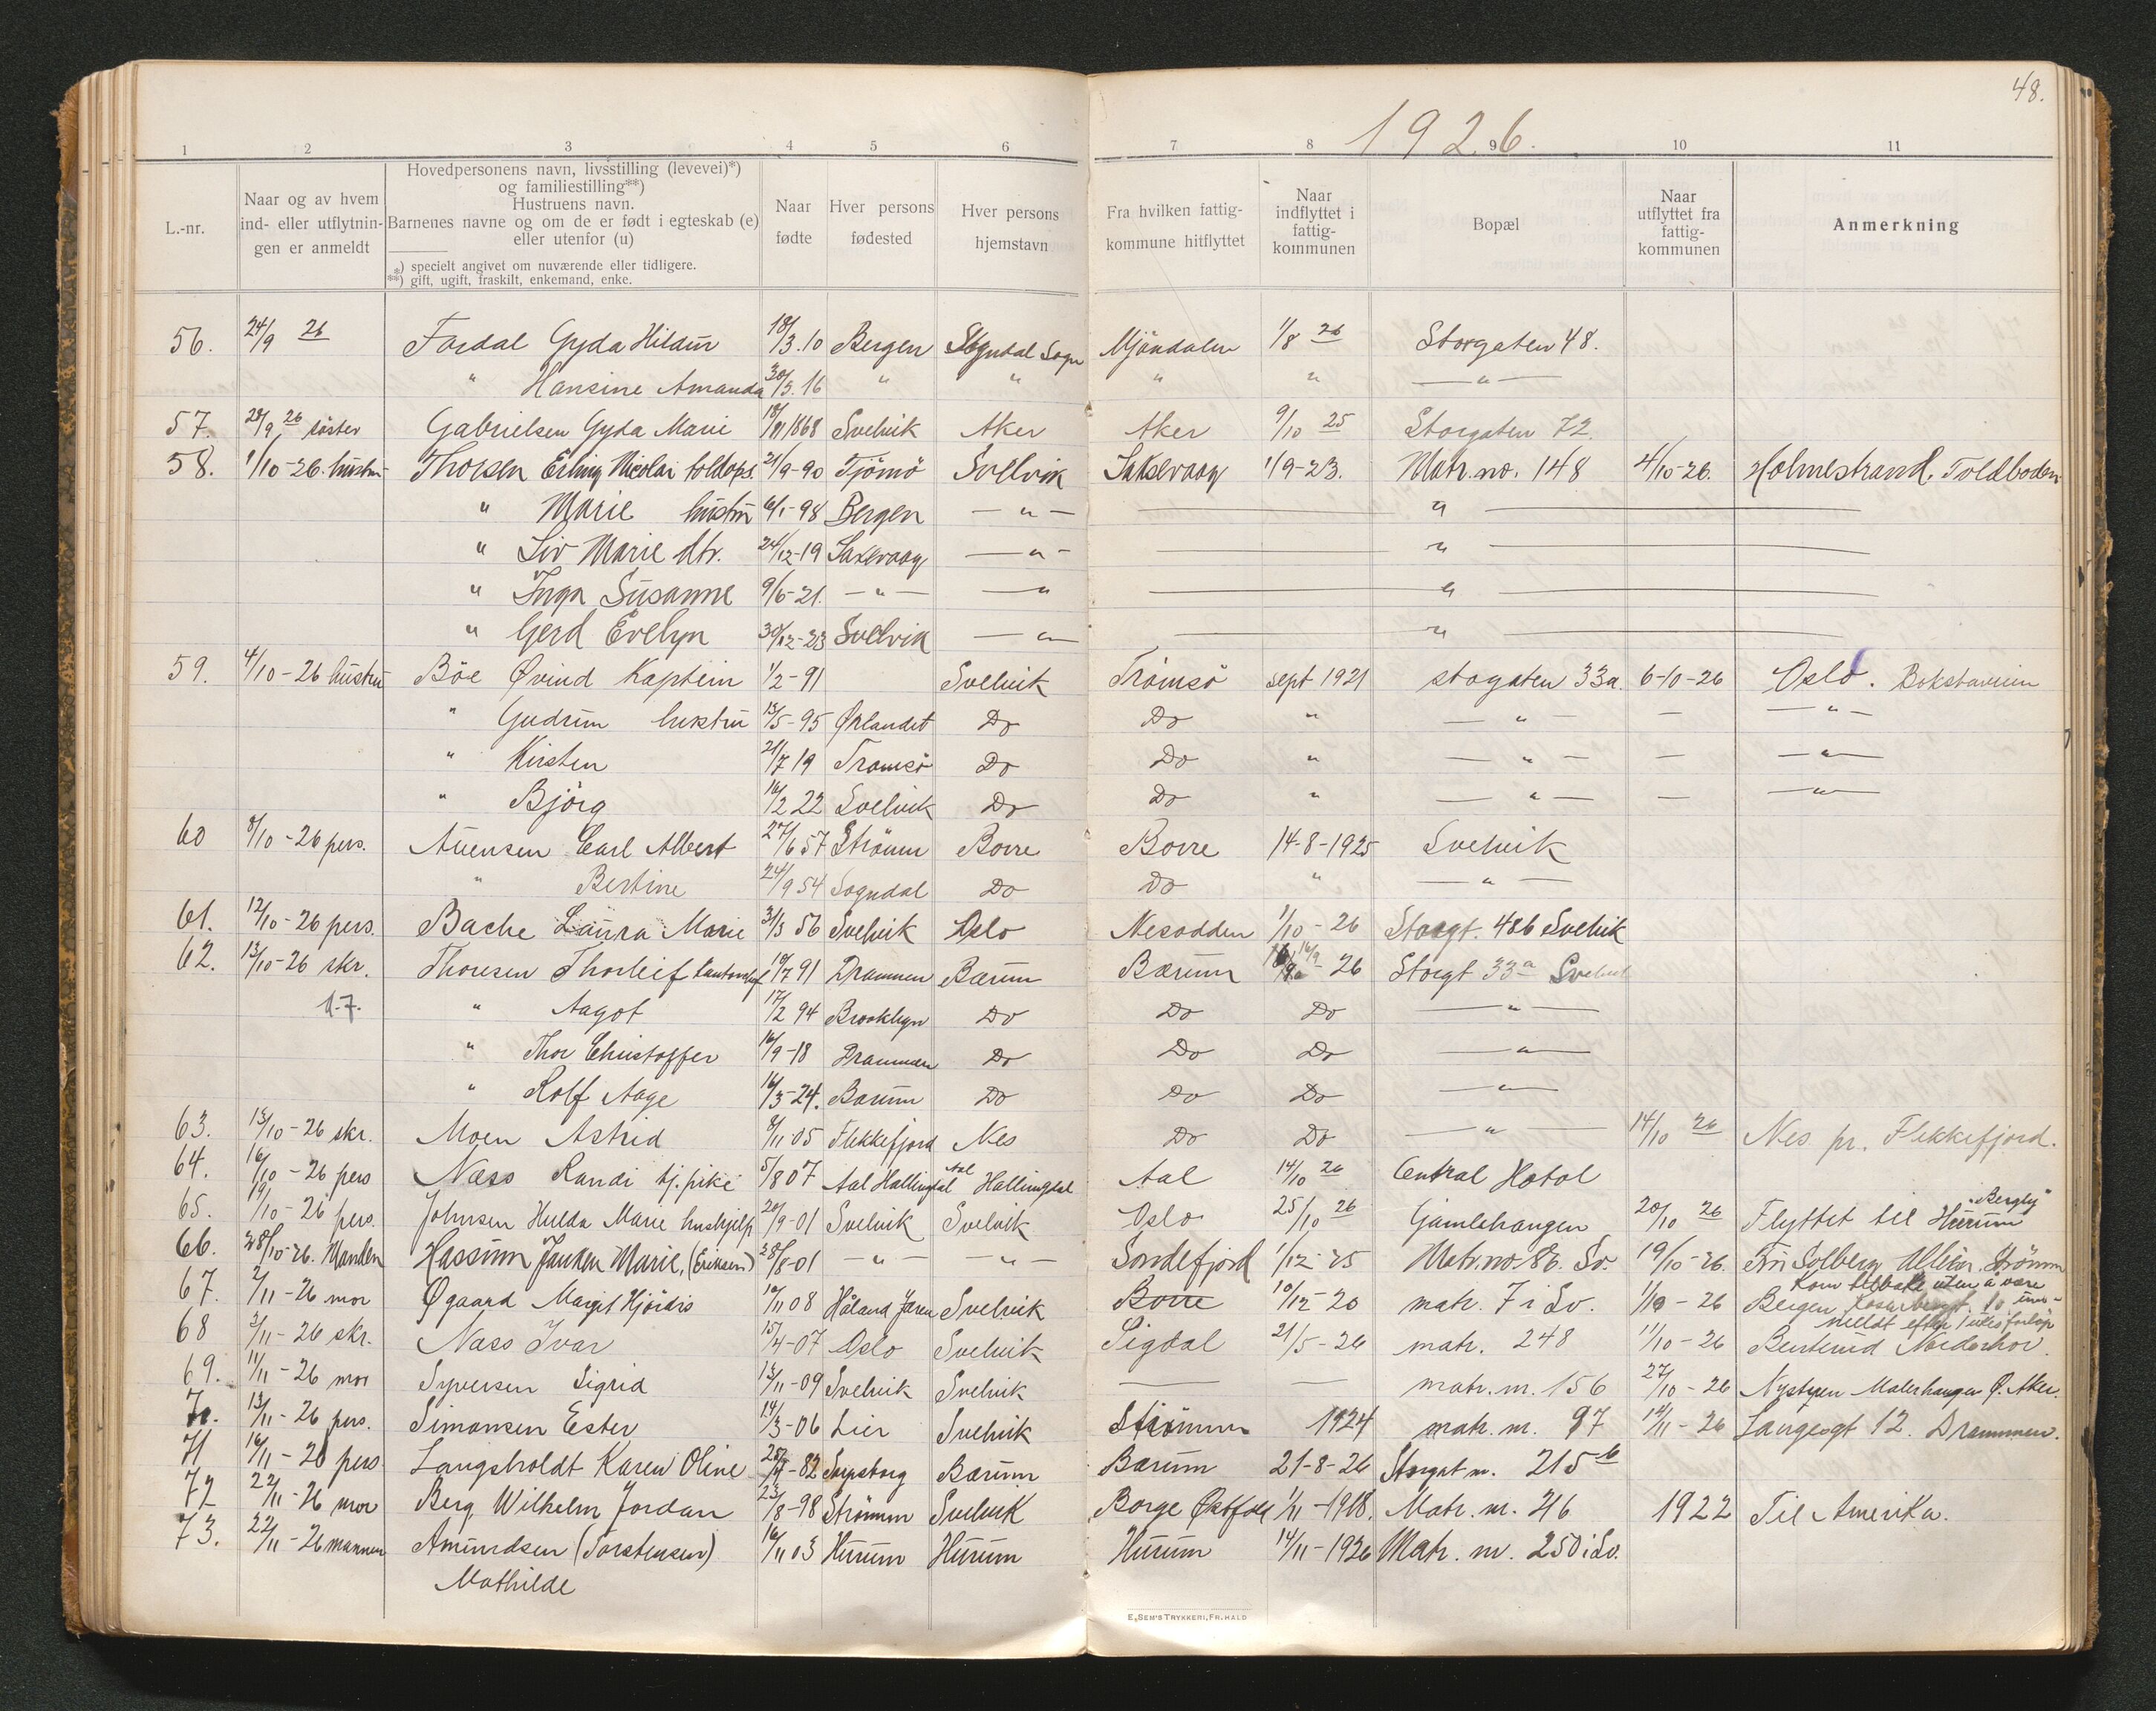 48.
1926.
1 2 3 4 5 6 7 8 9 10 11
L.-nr.
Naar og av hvem
ind- eller utflytnin-
gen er anmeldt
Hovedpersonens navn, livsstilling (levevei)*)
og familiestilling**)
Hustruens navn.
Barnenes navne og om de er født i egteskab (e)
eller utenfor (u)
*) specielt angivet om nuværende eller tidligere.
**) gift, ugift, fraskilt, enkemand, enke.
Naar
fødte
Hver persons
fødested
Hver persons
hjemstavn
Fra hvilken fattig-
kommune hitflyttet
Naar
indflyttet i
fattig-
kommunen
Bopæl
Naar
utflyttet fra
fattig-
kommunen
Anmerkning
56. 24/9 26 Fardal Gyda Hildur 18/3.10 Bergen Sogndal Sogn Mjöndalen 1/8 26 Storgaten 48.
" Hansine Amanda 30/3.16 " " " " — " —
57. 28/9 26 söster Gabrielsen Gyda Marie 18/11 1868 Svelvik Aker Aker 9/10 25 Storgaten 72.
58. 1/10-26. hustru Thorsen Erling Nicolai toldops. 21/9-90 Tjömö Svelvik Sakservaag 1/9-23. Matr.no. 148 4/10-26. Holmestrand. Toldboden
" Marie hustru 6/1-98 Bergen — " — — " —
" Liv Marie dtr. 24/12-19 Saxevaag — " — — " —
" Inga Susanne 9/6-21. — " — — " — " —
" Gerd Evelyn 30/12-23 Svelvik — " — " —
59. 4/10-26 hustru Böe Øvind Kaptein 1/2-91 Svelvik Tromsö sept 1921 stogaten 33a. 6-10-26 Oslo. Bokstaveien
" Gudrun hustru 13/5-95 Ørlandet Do Do " — " — — — " —
" Kirsten 21/7 19 Tromsö Do Do " — " — — — " —
" Björg 16/2 22 Svelvik Do Do " — " — — — " —
60 8/10-26 pers. Auensen Carl Albert 27/6 57 Strömm Borre Borre 14-8-1925 Svelvik
" Bertine 24/9 54 Sogndal Do Do " — " —
61. 12/10-26 pers. Bache Laura Marie 31/3 56 Svelvik Oslo Nesodden 1/10-26 Storgt. 48b Svelvik
62. 13/10-26 skr. Thoresen Thorleif 19/7 91 Drammen Bærum Bærum 16/9-26 Storgt 33a Svelvik
17. " Aagot 17/2 94 Brooklyn Do Do Do — " —
" Thor Christoffer 16/9-18 Drammen Do Do Do — " —
" Rolf Aage 16/3-24. Bærum Do Do Do — " —
63. 13/10-26 skr. Moen Astrid 9/11 05 Flekkefjord Nes Do Do — " — 14/10 26 Nes pr. Flekkefjord.
64. 16/10-26 pers Næss Randi tj.pike 5/8 07 Aal Hallingdal Aal Hallingdal Aal 14/10 26 Central Hotel
65. 19/10-26 pers. Johnsen Hulda Marie hushjelp 20/9-01 Svelvik Svelvik Oslo 25/10 26 Gamlehaugen 20/10 26 Flyttet til Hurum "Bergby"
66. 28/10-26. Manden Hassum Jenken Marie, (Eriksen) 28/8-01 — " — — " — Sandefjord 1/12-25 Matr.no 86. Sv. 19/10-26. Fri Solberg Strömm
67. 2/11-26 mor Øgaard Margit Hjördis 10/11 08 Håland Jæren Svelvik Borre 10/12-20 matr. 7 i Sv. 1/10-26 Bergen Kom tilbake uten å være
meldt efter
68 3/11-26 skr. Næss Ivar 15/4-07 Oslo Svelvik Sigdal 21/5-26 matr. 248 11/10-26 Norderhov.
69. 11/11-26 mor Syversen Sigrid 13/11-09 Svelvik Svelvik — — matr. nr. 156 27/10-26 Nystuen Malerhaugen Ø. Aker.
70. 13/11-26 pers. Simonsen Ester 14/3-06 Lier Svelvik Strömm 1924 matr. nr. 97 14/11-26 Langesgt 12. Drammen.
71 16/11-26 pers. Langsholdt Karen Oline 25/4-82 Sarpsborg Bærum Bærum 21-8-26 Storgat nr. 215 b
72 22/11-26 mor Berg, Wilhelm Jordan 23/8-98 Strömm Svelvik Borge Østfold 1/11-1918. Matr. nr. 216 1922 Til Amerika.
73. 22/11-26 mannen Amundsen (Torstensen) 16/11 03 Hurum Hurum Hurum 14/11-1926 Matr. nr. 250 i Sv.
Mathilde
E. SEM'S TRYKKERI, FR.HALD